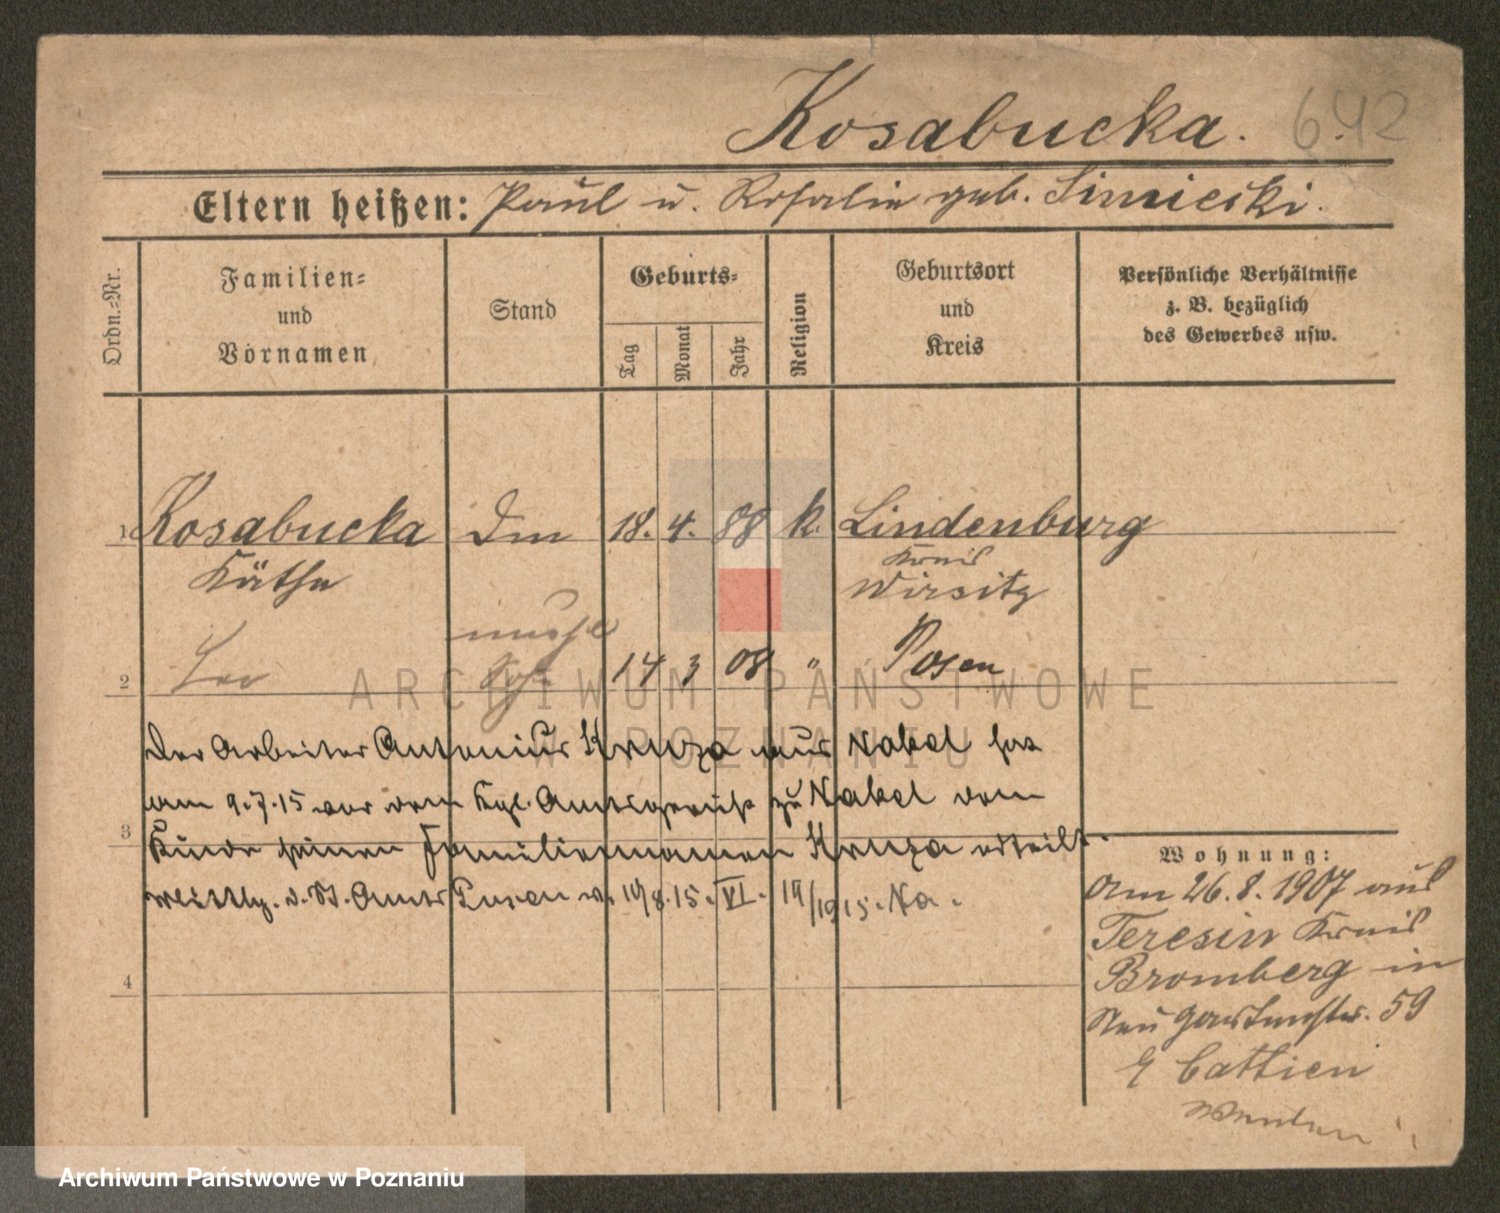 Kosabucka. 642
Eltern heißen: Paul u. Rosalie geb. Simiecki.
Ordn.-Nr.
Familien-
und
Vornamen
Stand
Geburts-
Tag
Monat
Jahr
Religion
Geburtsort
und
Kreis
Persönliche Verhältnisse
z. B. bezüglich
des Gewerbes usw.
1 Kosabucka Dm 18. 4. 88 k. Lindenburg
Käthe Kreis
Wirsitz
unehl
2 Leo Sohn 14 3 08 " Posen
ARCHIWUM PAŃSTWOWE
W POZNANIU
Der Arbeiter Antonius Kruza aus Nakel hat
am 9.7.15 vor dem Kgl. Amtsgericht zu Nakel dem
3 Kinde seinen Familiennamen Kruza erteilt.
Mittlg. d. St. Amts Posen v. 10/8.15. VI. 19/10 15. Na.
4
Wohnung:
Am 26.8.1907 aus
Teresin Kreis
Bromberg in
Neu Gartenstr. 59
b Cattien
Archiwum Państwowe w Poznaniu